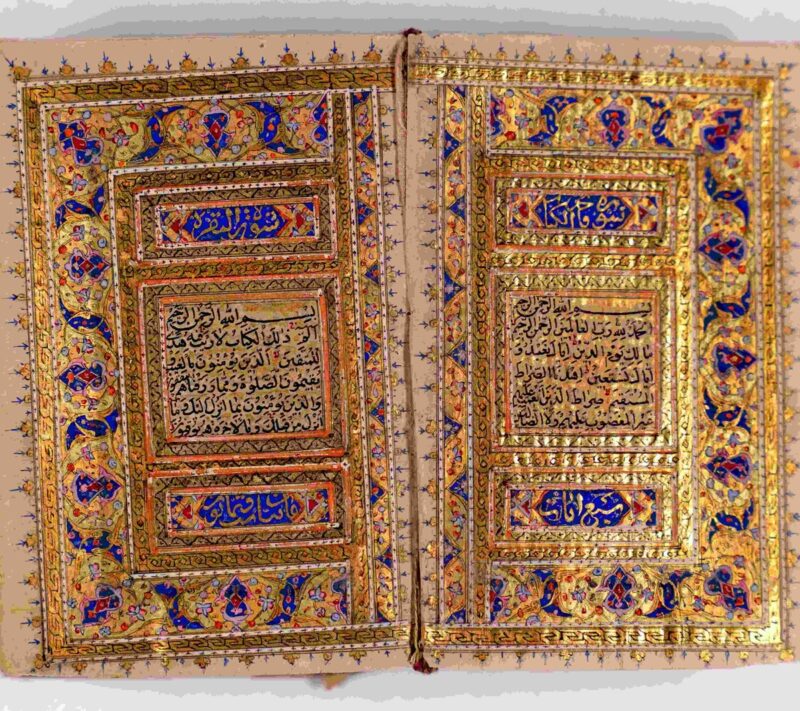 سورة فاتحة الكتاب
بسم الله الرحمن الرحيم
الحمد لله رب العالمين الرحمن الرحيم
مالك يوم الدين اياك نعبد و
اياك نستعين اهدنا الصراط
المستقيم صراط الذين انعمت عليهم
غير المغضوب عليهم ولا الضالين
سبع آيات
سورة البقرة
بسم الله الرحمن الرحيم
الم ذلك الكتاب لا ريب فيه هدى
للمتقين الذين يؤمنون بالغيب
يقيمون الصلوة ومما رزقناهم
والذين يؤمنون بما انزل اليك وما
انزل من قبلك وبالاخرة هم يوقنون